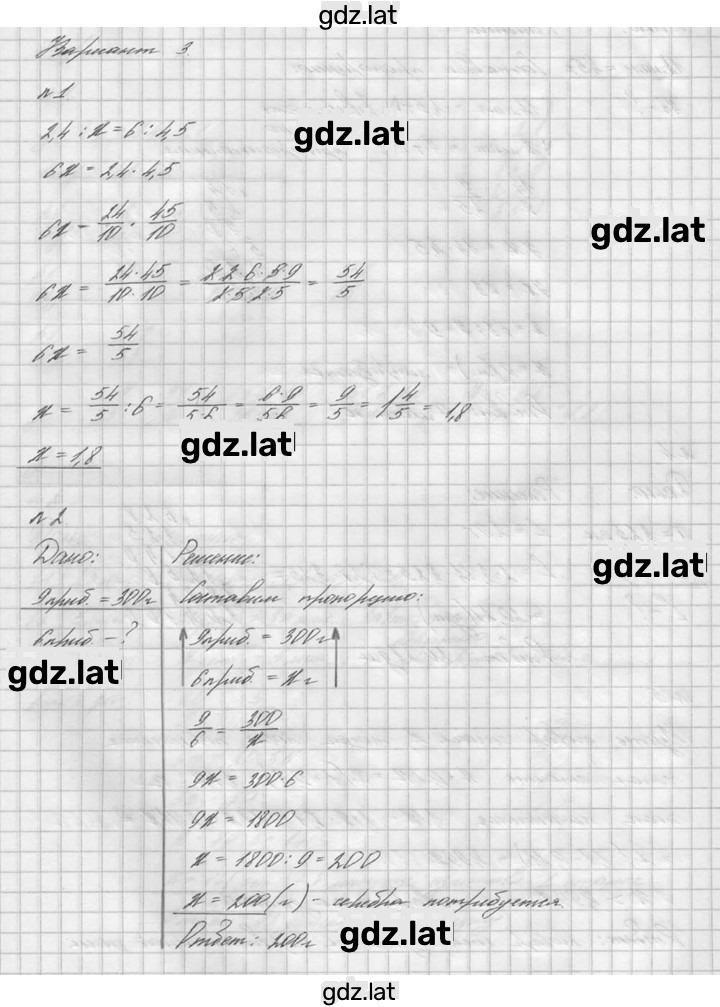 gdz.lat
Вариант 3.
№1
2,4 : x = 6 : 4,5
gdz.lat
6x = 2,4 · 4,5
6x = 24/10 · 45/10
gdz.lat
6x = 24·45/10·10 = 2·2·6·5·9/2·5·2·5 = 54/5
6x = 54/5
x = 54/5 : 6 = 54/5·6 = 6·9/5·6 = 9/5 = 1 4/5 = 1,8
x = 1,8
gdz.lat
№2
Дано:
9 приб. = 300 г
6 приб. – ?
gdz.lat
Решение:
Составим пропорцию:
gdz.lat
9 приб. = 300 г
6 приб. = x г
9/6 = 300/x
9x = 300·6
9x = 1800
x = 1800 : 9 = 200
x = 200 (г) – серебра потребуется
Ответ: 200 г
gdz.lat
gdz.lat